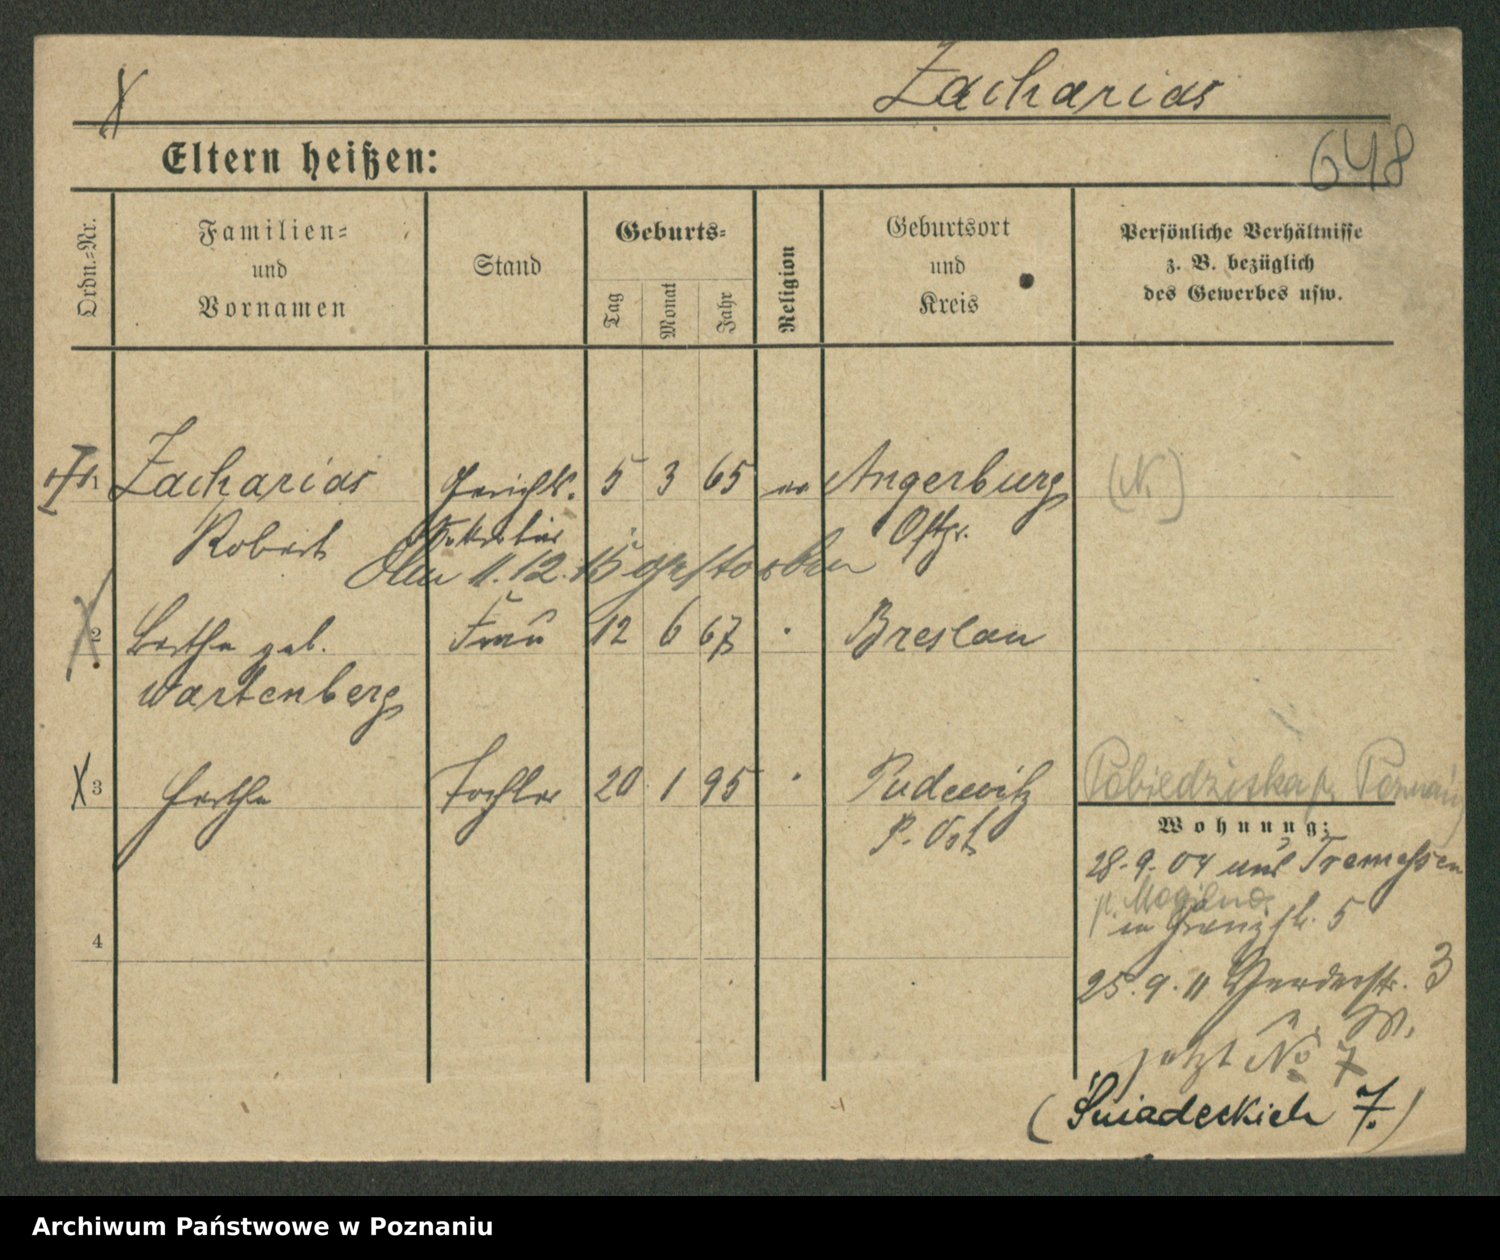 Zacharias
648
Eltern heißen:
Ordn.-Nr.
Familien- und Vornamen
Stand
Geburts-
Tag
Monat
Jahr
Religion
Geburtsort und Kreis
Persönliche Verhältnisse
z. B. bezüglich
des Gewerbes usw.
1 Zacharias Gerichts. 5 3 65 ev Angerburg (N.)
Robert Sekretär Ostpr.
Am 11. 12. 15 gestorben
2 Berthe geb. Frau 12 6 67 " Breslau
Wartenberg
3 Herthe Tochter 20 1 95 " Pudewitz Pobiedziska p. Poznań
P. Ost
4
Wohnung:
28.9.04 aus Tremessen
p. Mogilno
in Grenzstr. 5
25.9.11 Herderstr. 3
W.
jetzt No 7
(Śniadeckich 7.)
Archiwum Państwowe w Poznaniu